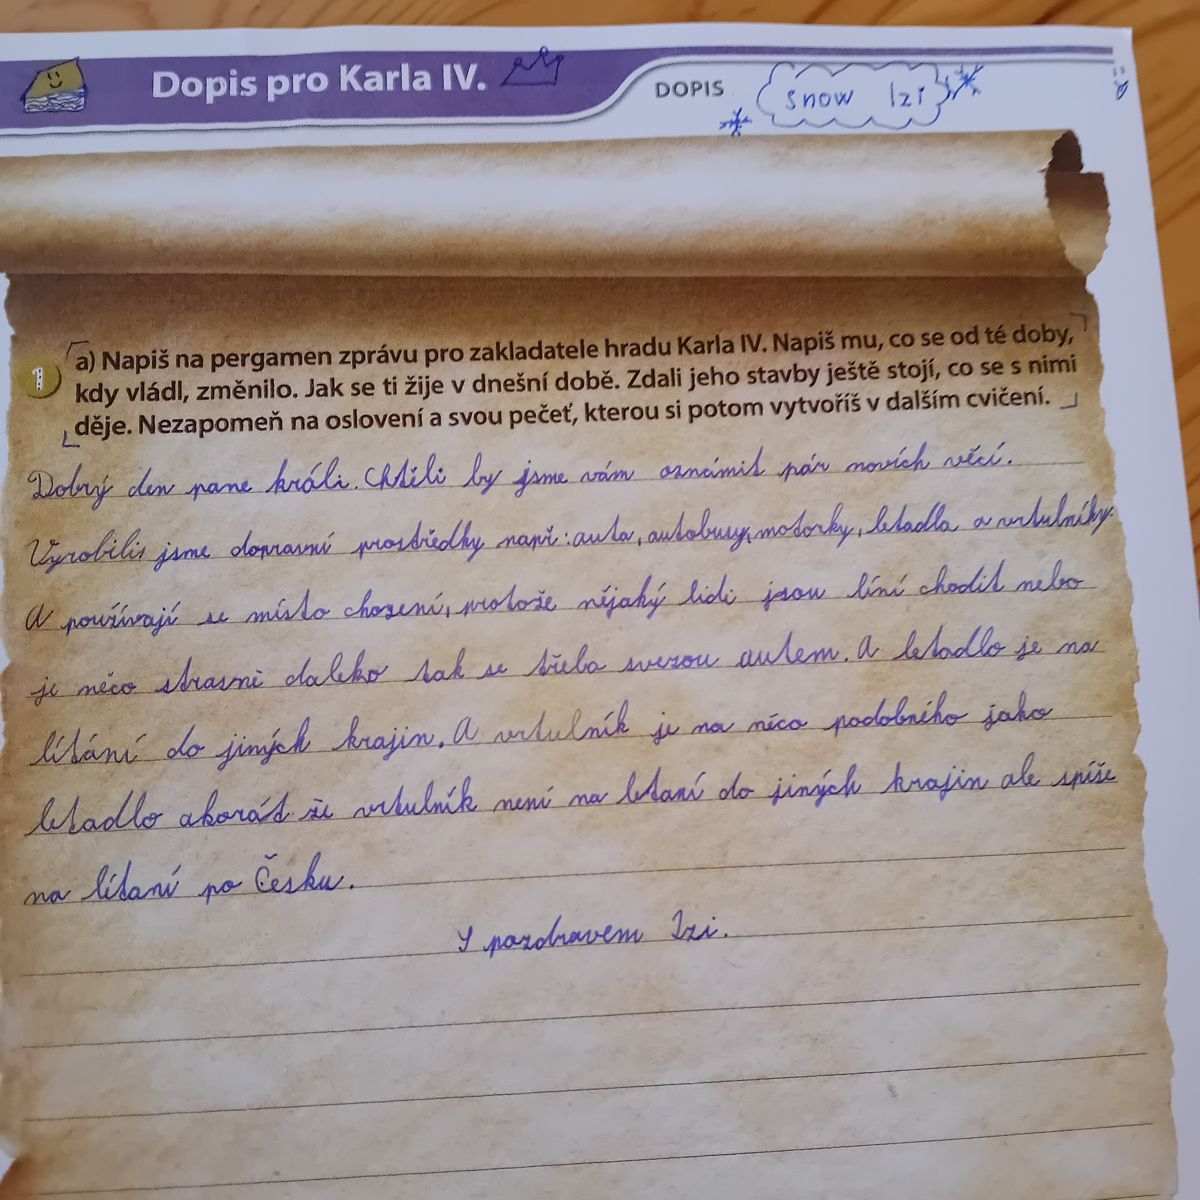 Dopis pro Karla IV.
DOPIS
snow Izi
1
a) Napiš na pergamen zprávu pro zakladatele hradu Karla IV. Napiš mu, co se od té doby,
kdy vládl, změnilo. Jak se ti žije v dnešní době. Zdali jeho stavby ještě stojí, co se s nimi
děje. Nezapomeň na oslovení a svou pečeť, kterou si potom vytvoříš v dalším cvičení.
Dobrý den pane králi. Chtěli by jsme vám oznámit pár novích věcí.
Vyrobilis jsme dopravní prostředky např: auta, autobusy, motorky, letadla a vrtulníky.
A používají se místo chození, protože nějaký lidi jsou líní chodit nebo
je něco strasně daleko tak se třeba svezou autem. A letadlo je na
lítání do jiných krajin. A vrtulník je na něco podobného jako
letadlo akorát že vrtulník není na letaní do jiných krajin ale spíše
na lítaní po Česku.
S pozdravem Izi.